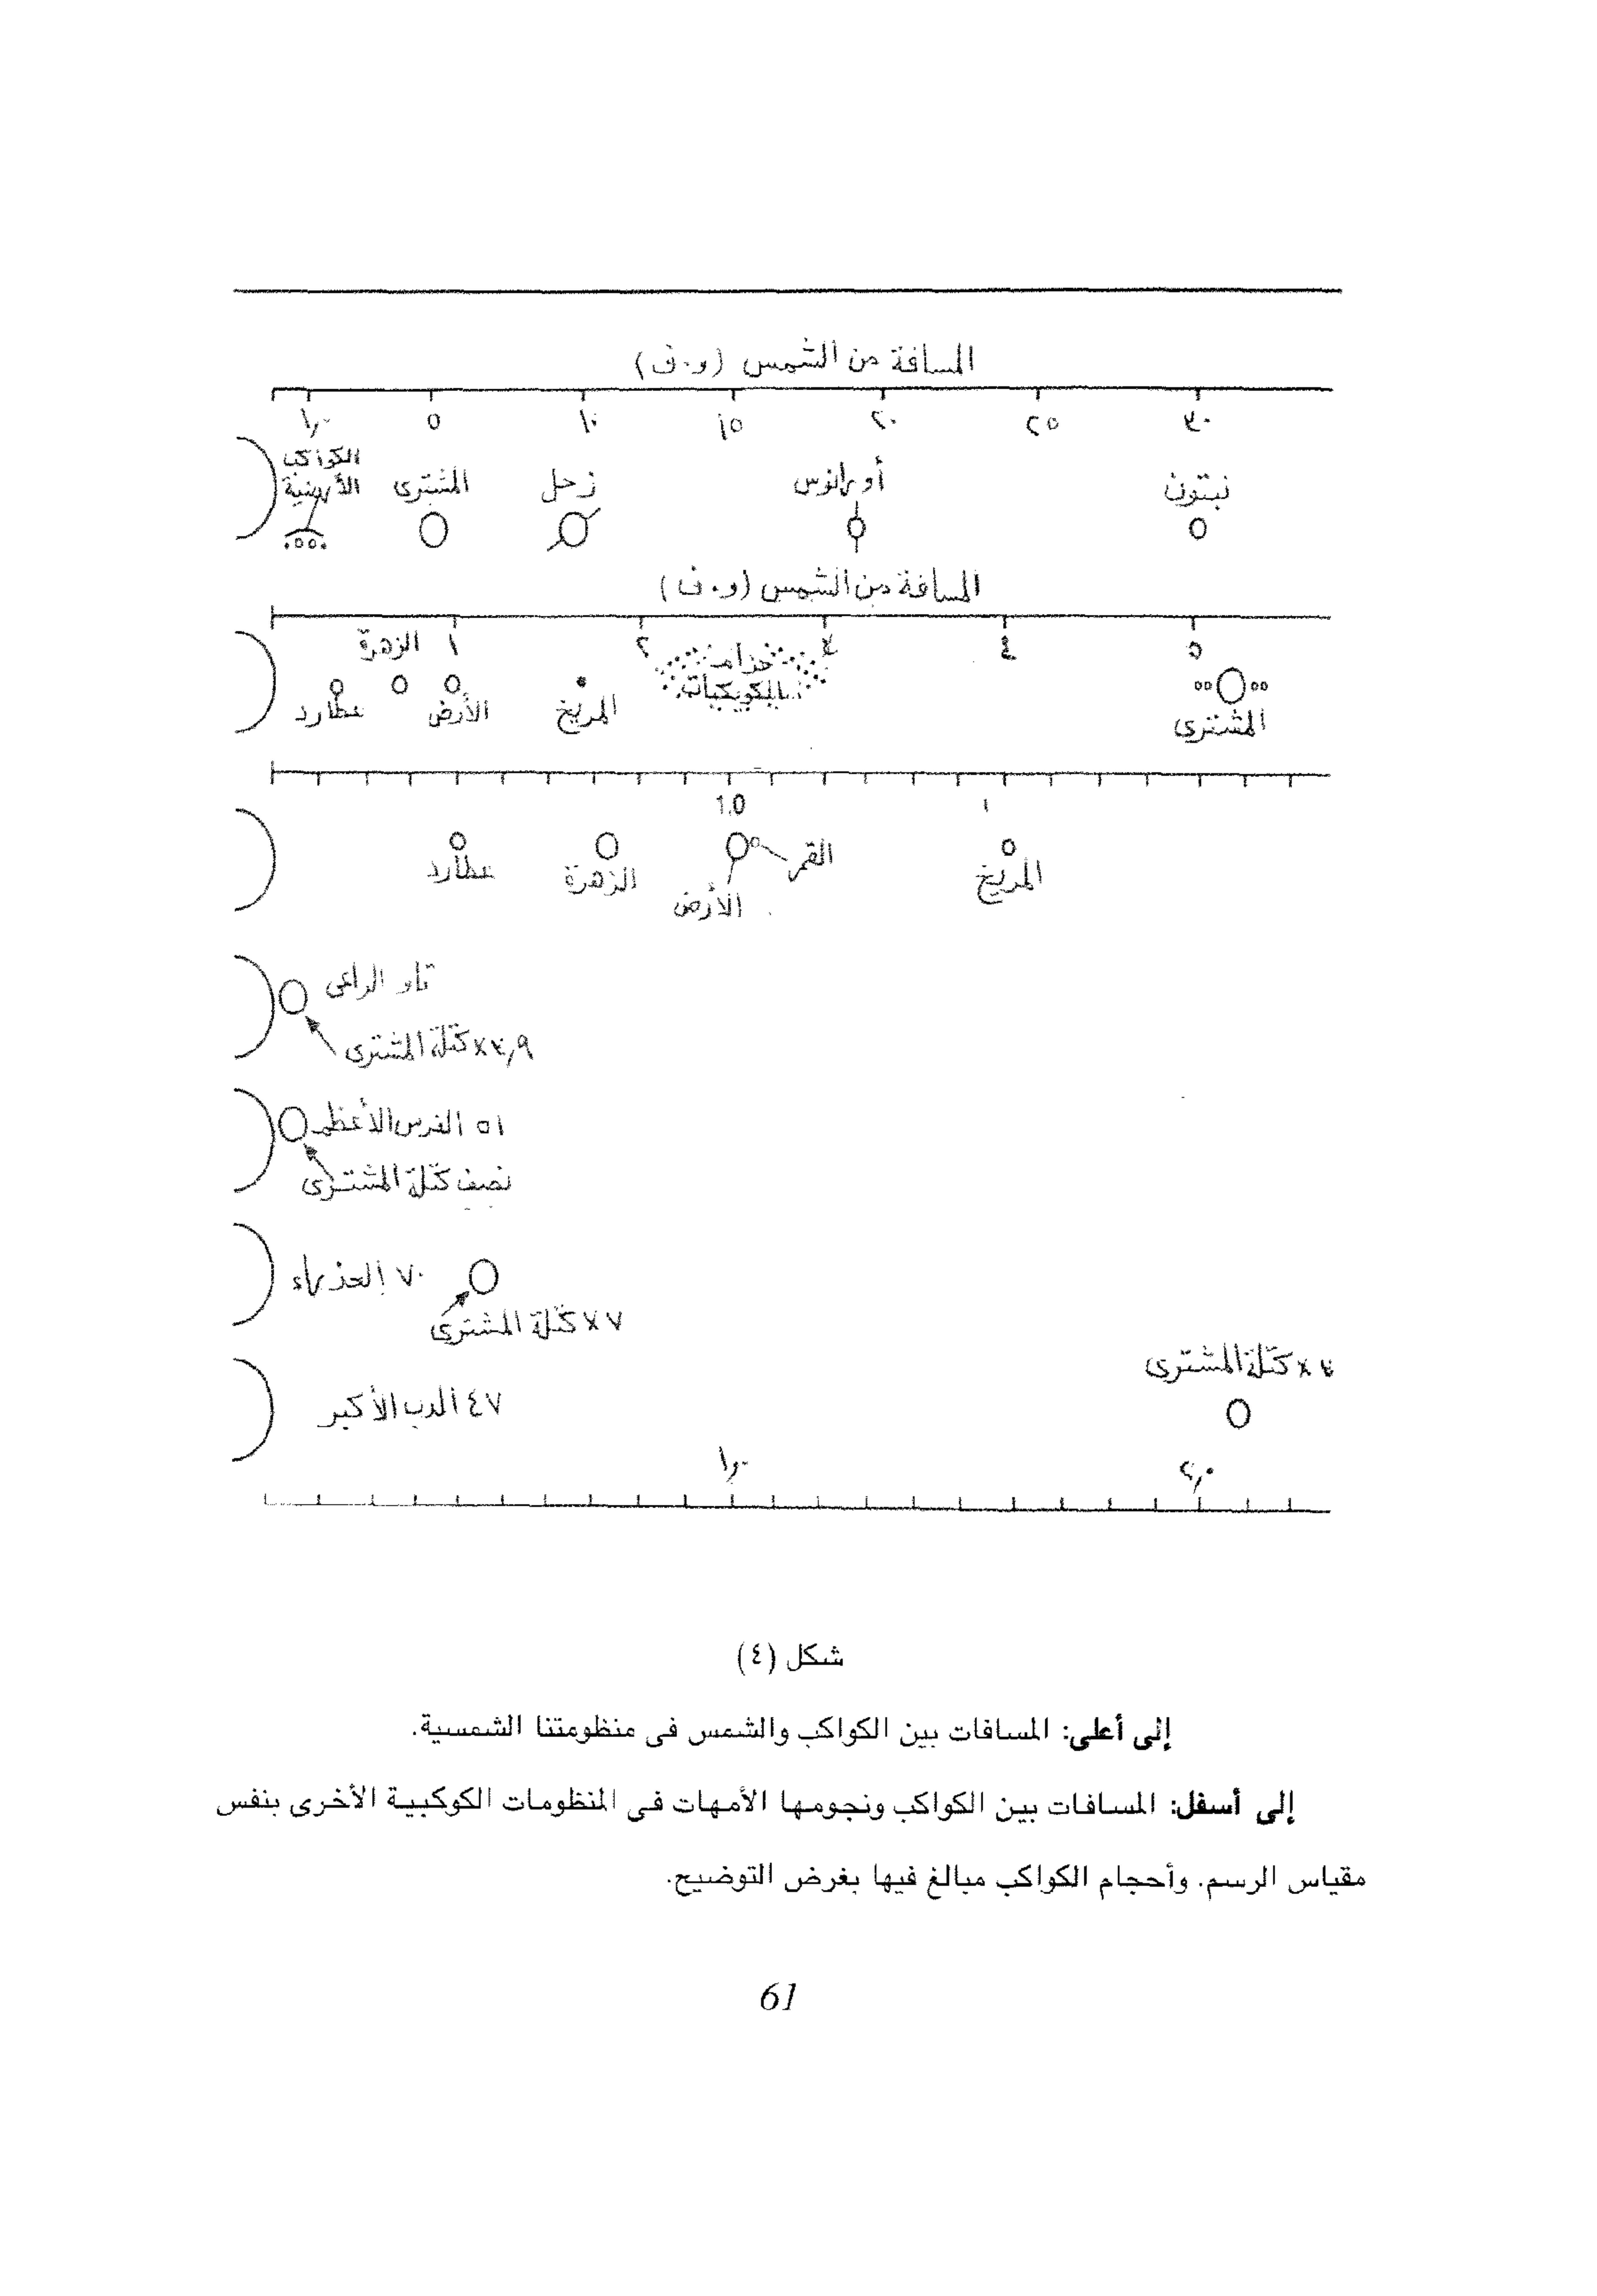 المسافة من الشمس (و.ف)
١,٠ ٥ ١٠ ١٥ ٢٠ ٢٥ ٣٠
الكواكب
الأرضية المشترى زحل أورانوس نبتون
المسافة من الشمس (و.ف)
الزهرة ١ ٢ ٣ ٤ ٥
حزام
الكويكبات
عطارد الأرض المريخ المشترى
1.0
عطارد الزهرة الأرض القمر المريخ
تاو الراعى
٣,٩ × كتلة المشترى
٥١ الفرس الأعظم
نصف كتلة المشترى
٧٠ العذراء
٧ × كتلة المشترى
٣ × كتلة المشترى
٤٧ الدب الأكبر
١,٠ ٢,٠
شكل (٤)
إلى أعلى: المسافات بين الكواكب والشمس فى منظومتنا الشمسية.
إلى أسفل: المسافات بين الكواكب ونجومها الأمهات فى المنظومات الكوكبية الأخرى بنفس
مقياس الرسم. وأحجام الكواكب مبالغ فيها بغرض التوضيح.
61